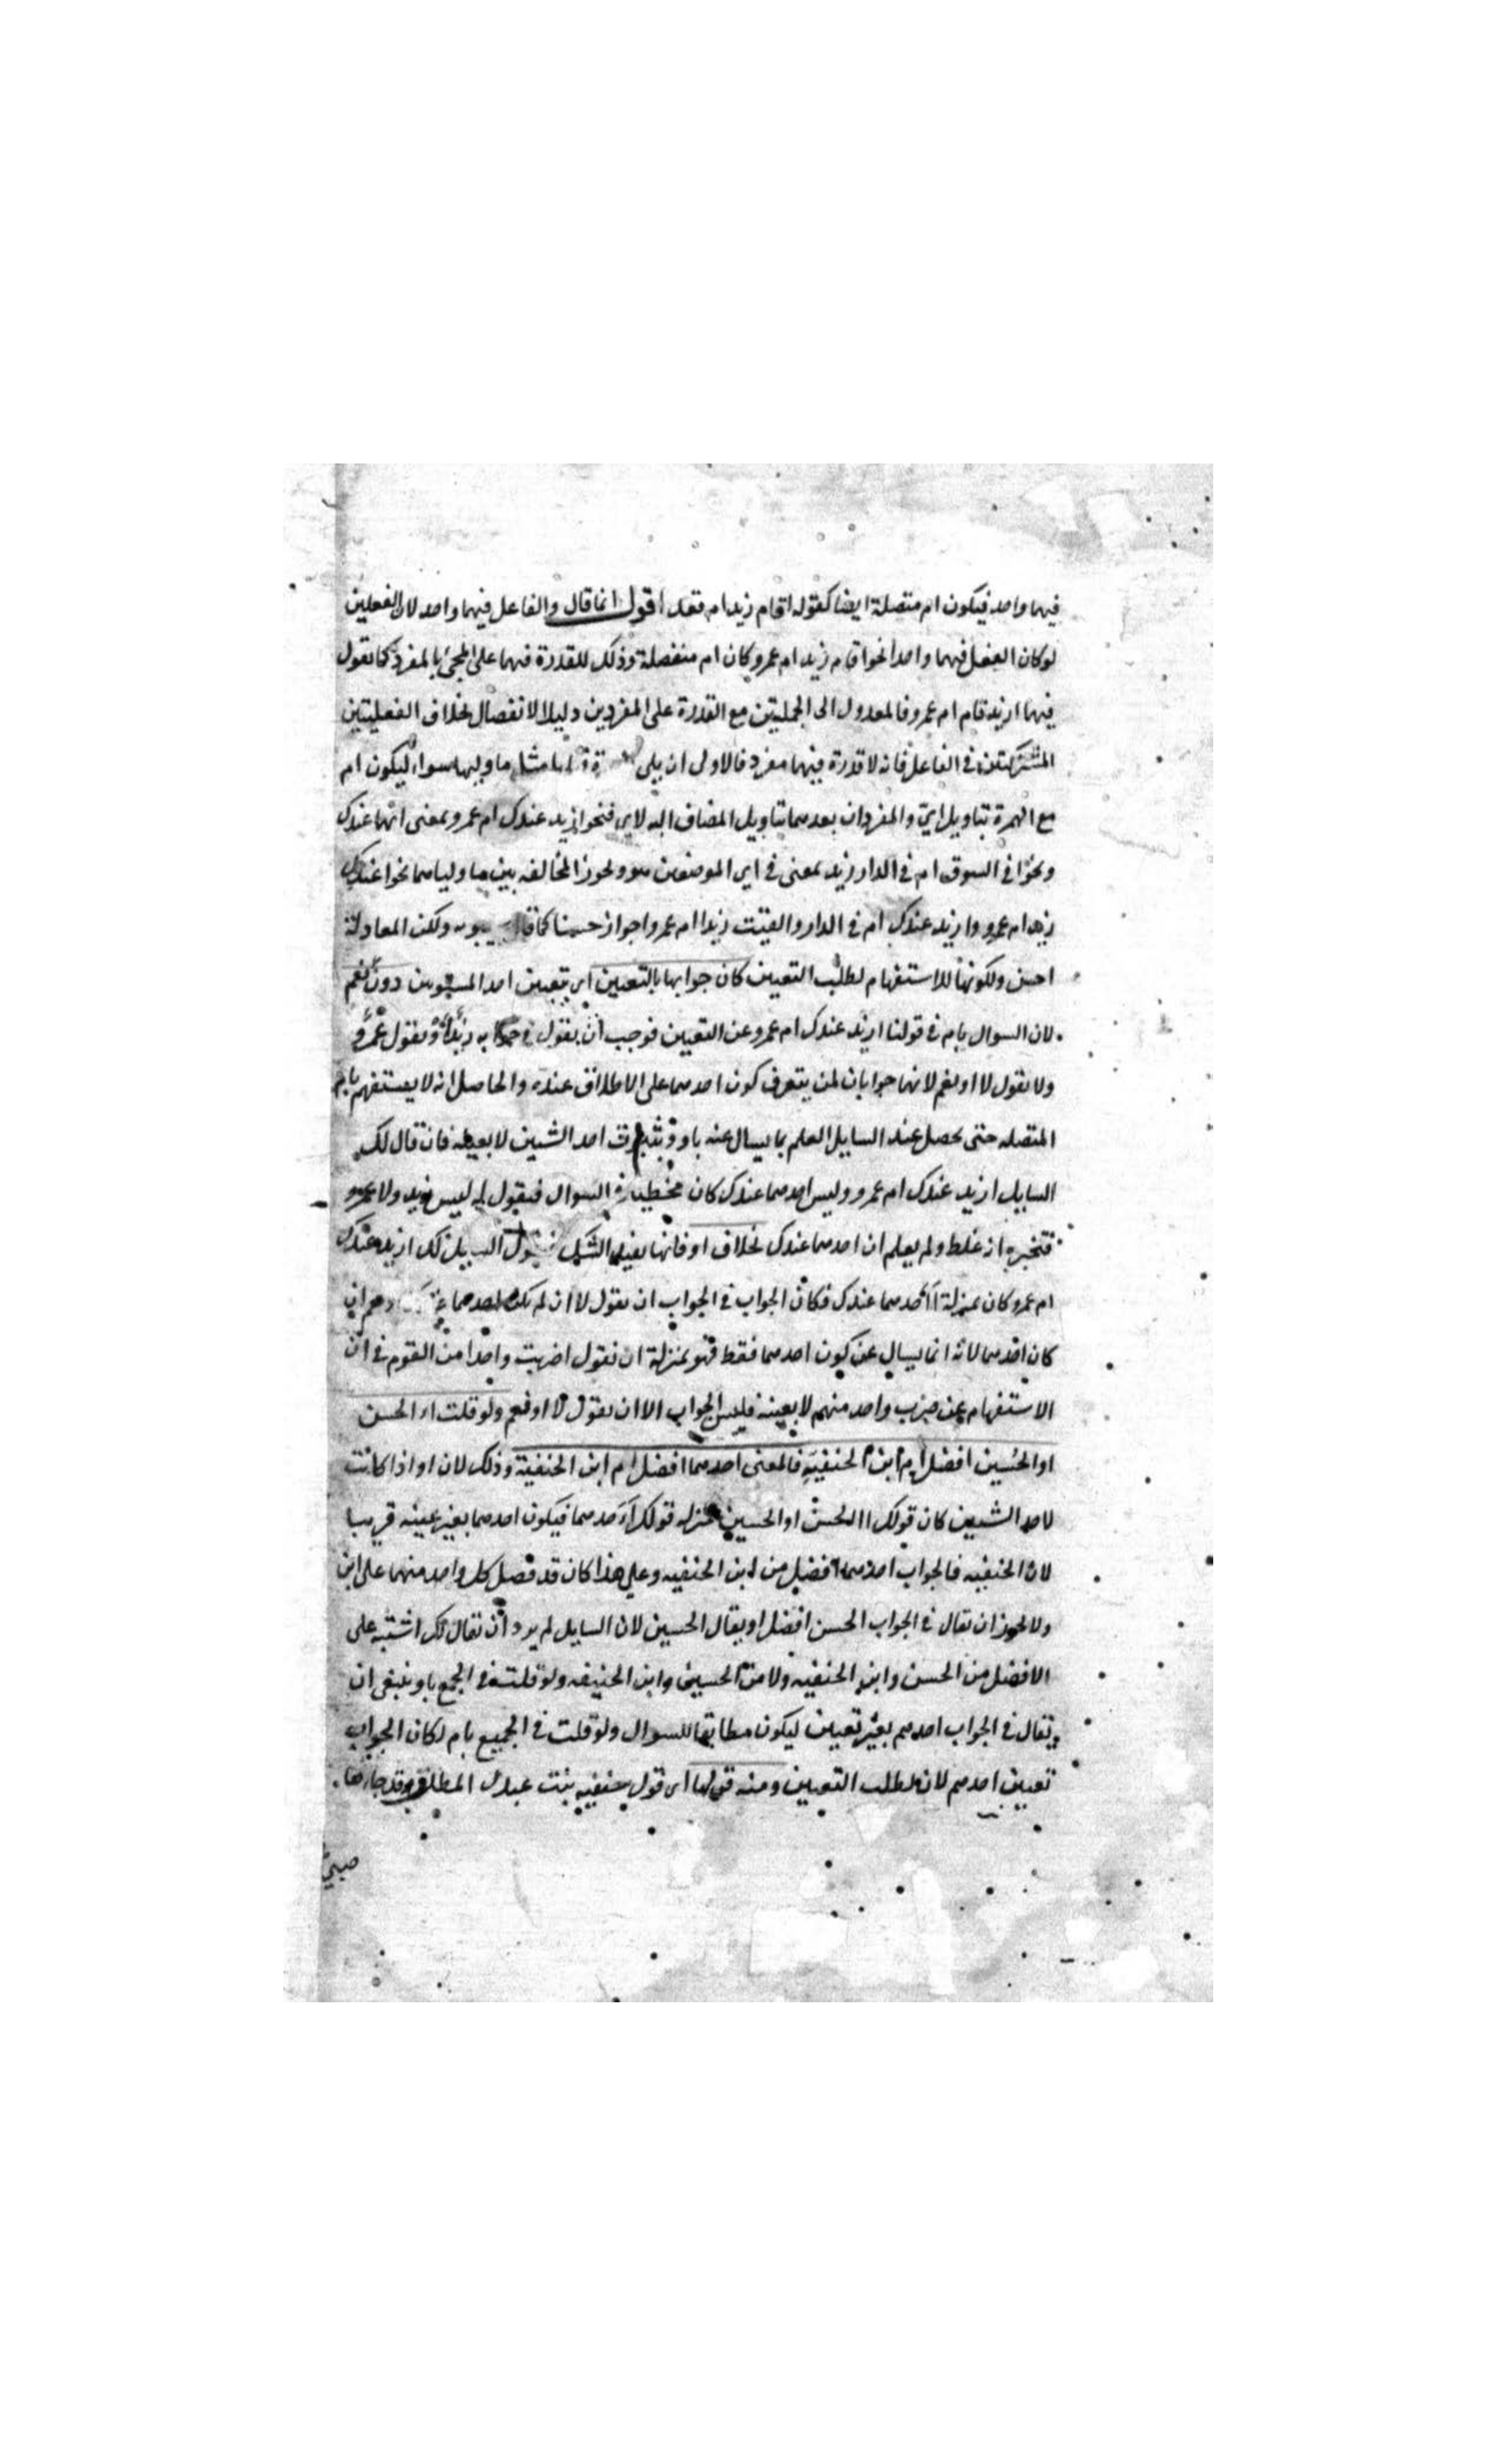 فيهما واحد فيكون ام متصلة ايضا كقوله اقام زيد ام قعد اقول انما قال والفاعل فيهما واحد لان الفعلين
لو كان الفعل فيهما واحدا نحو اقام زيد ام عمرو كان ام منفصلة وذلك للقدرة فيهما على المجئ بالمفرد كما تقول
فيهما ازيد قام ام عمرو فالعدول الى الجملتين مع القدرة على المفردين دليل الانفصال بخلاف الفعليتين
المشتركتين في الفاعل فانه لا قدرة فيهما مفرد فالاولى ان يلى ما وليها سواء ليكون ام
مع الهمزة بتاويل اي والمفردان بعدهما بتاويل المضاف اليه لاي فنحو ازيد عندك ام عمرو بمعنى ايهما عندك
ونحو افي السوق ام في الدار زيد بمعنى في اي الموضعين هو ويجوز المخالفه بين ما وليا هما نحو اعندك
زيد ام عمرو وازيد عندك ام في الدار والقيت زيدا ام عمرا جوازا حسنا كما قال سيبويه ولكن المعادلة
احسن ولكونها للاستفهام لطلب التعيين كان جوابها بالتعيين اي بتعيين احد المستويين دون نعم
لان السوال بام في قولنا ازيد عندك ام عمرو عن التعيين فوجب ان يقول في جوابه زيد او يقول عمرو
ولا يقول لا او نعم لانهما جوابان لمن يتعرف كون احدهما على الاطلاق عنده والحاصل انه لا يستفهم بام
المتصله حتى يحصل عند السايل العلم بما يسال عنه باو وثبوت احد الشيين لا بعينه فان قال لك
السايل ازيد عندك ام عمرو وليس احدهما عندك كان مخطيا في السوال فيقول له ليس زيد ولا عمرو
فتخبره انه غلط ولم يعلم ان احدهما عندك بخلاف او فانها يفيد الشك السايل لك ازيد عندك
ام عمرو كان بمنزلة أأحدهما عندك فكان الجواب في الجواب ان يقول لا ان لم يكن احدهما ان
كان احدهما لانه انما يسال عن كون احدهما فقط فهو بمنزلة ان تقول اضربت واحدا من القوم في ان
الاستفهام عن ضرب واحد منهم لا بعينه فليس الجواب الا ان يقول لا او نعم ولو قلت االحسن
او الحسين افضل ام ابن الحنفية فالمعنى احدهما افضل ام ابن الحنفية وذلك لان او اذا كانت
لاحد الشيين كان قولك االحسن او الحسين بمنزله قولك أأحدهما فيكون احدهما بغير عينه قريبا
لابن الحنفيه فالجواب احدهما افضل من ابن الحنفيه وعلى هذا كان قد فضل كل واحد منهما على ابن
ولا يجوز ان يقال في الجواب الحسن افضل او يقال الحسين لان السايل لم يرد ان يقال لك اشتبه على
الافضل من الحسن وابن الحنفيه ولا من الحسين وابن الحنفيه ولو قلت في الجمع باو ينبغي ان
يقال في الجواب احدهم بغير تعيين ليكون مطابقا للسوال ولو قلت في الجميع بام لكان الجواب
تعيين احدهم لانه لطلب التعيين ومنه قولها اي قول صفيه بنت عبد المطلب وقد جاءها
صبي